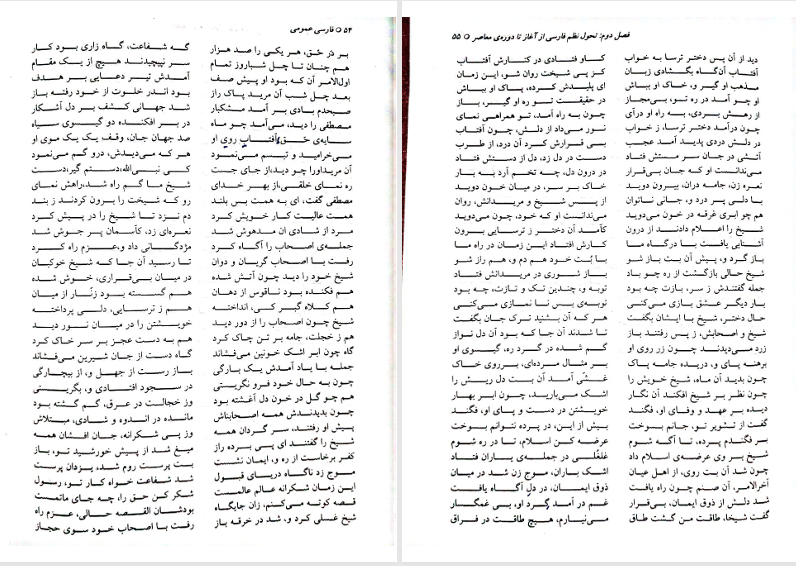 ۵۴ فارسی عمومی
بر در حق، هر یکی را صد هزار گه شفاعت، گاه زاری بود کار
هم چنان تا چل شباروز تمام سر نپیچیدند هیچ از یک مقام
اول‌الامر آن که بود او پیش صف آمدش تیر دعایی بر هدف
بعد چل شب آن مرید پاک راز بود اندر خلوت از خود رفته باز
صبحدم بادی بر آمد مشکبار شد جهانی کشف بر دل آشکار
مصطفی را دید، می‌آمد چو ماه در بر افکنده دو گیسوی سیاه
سایه‌ی حق، آفتاب روی او صد جهان جان، وقف یک یک موی او
می‌خرامید و تبسم می‌نمود هر که می‌دیدش، درو گم می‌نمود
آن مریداورا چو دید،از جای جست کی نبی‌الله،دستم گیر،دست
ره نمای خلقی،از بهر خدای شیخ ما گم راه شد،راهش نمای
مصطفی گفت، ای به همت بس بلند رو که شیخت را برون کردند ز بند
همت عالیت کار خویش کرد دم نزد تا شیخ را در پیش کرد
مرد از شادی آن مدهوش شد نعره‌ای زد، کآسمان پر جوش شد
جمله‌ی اصحاب را آگاه کرد مژدگانی داد و،عزم راه کرد
رفت با اصحاب گریان و دوان تا رسید آن جا که شیخ خوکبان
شیخ خود را دید چون آتش شده در میان بی‌قراری، خوش شده
هم فکنده بود ناقوس از دهان هم گسسته بود زنّار از میان
هم کلاه گبر کی، انداخته هم ز ترسایی، دلی پرداخته
شیخ چون اصحاب را از دور دید خویشتن را در میان نور دید
هم ز خجلت، جامه بر تن چاک کرد هم به دست عجز بر سر خاک کرد
گاه چون ابر اشک خونین می‌فشاند گاه دست از جان شیرین می‌فشاند
جمله با یاد آمدش یک بارگی باز رست از جهل و، از بیچارگی
چون به حال خود فرو نگریستی در سجود افتادی و، بگریستی
هم چو گل در خون دل آغشته بود وز خجالت در عرق، گم گشته بود
چون بدیدندش همه اصحابناش مانده در اندوه و شادی، مبتلاش
پیش او رفتند، سر گردان همه وز پی شکرانه، جان افشان همه
شیخ را گفتند ای پی برده راز میغ شد از پیش خورشید تو، باز
کفر برخاست از ره و، ایمان نشست بت پرست روم شد، یزدان پرست
موج زد ناگاه دریای قبول شد شفاعت خواه کار تو، رسول
این زمان شکرانه عالم عالمست شکر کن حق را، چه جای ماتمست
قصه کوته می‌کنم، زان جایگاه بودشان القصه حالی، عزم راه
شیخ غسلی کرد و، شد در خرقه باز رفت با اصحاب خود سوی حجاز
فصل دوم: تحول نظم فارسی از آغاز تا دوره‌ی معاصر ۵۵
دید از آن پس دختر ترسا به خواب کاو فتادی در کنارش آفتاب
آفتاب آن‌گاه بگشادی زبان کز پی شیخت روان شو، این زمان
مذهب او گیر و، خاک او بباش ای پلیدش کرده، پاک او بباش
او چو آمد در ره تو، بی‌مجاز در حقیقت تو ره او گیر، باز
از رهش بردی، به راه او درآی چون به راه آمد، تو همراهی نمای
چون درآمد دختر ترسا، ز خواب نور می‌داد از دلش، چون آفتاب
در دلش دردی پدید آمد عجب بی قرارش کرد آن درد، از طرب
آتشی در جان سر مستش فتاد دست در دل زد، دل از دستش فتاد
می‌ندانست او که جان بی‌قرار در درون دل، چه تخم آرد به بار
نعره زن، جامه دران، بیرون دوید خاک بر سر، در میان خون دوید
با دلی پر درد و، جانی ناتوان از پس شیخ و مریدانش، روان
هم چو ابری غرقه در خون می‌دوید می‌ندانست او که خود، چون می‌دوید
شیخ را اعلام دادند از درون کآمد آن دختر ز ترسایی برون
آشنایی یافت با درگاه ما کارش افتاد این زمان در راه ما
باز گرد و، پیش آن بت باز شو با بُت خود هم دم و، هم راز شو
شیخ حالی بازگشت از ره چو باد باز شوری در مریدانش فتاد
جمله گفتندش ز سر، بازت چه بود توبه و، چندین تک و تازت، چه بود
بار دیگر عشق بازی می‌کنی توبه‌ی بس نا نمازی می‌کنی
حال دختر، شیخ با ایشان بگفت هر که آن بشنید ترک جان بگفت
شیخ و اصحابش، ز پس رفتند باز تا شدند آن جا که بود آن دل نواز
زرد می‌دیدند چون زر روی او گم شده در گرد ره، گیسوی او
برهنه پای و، دریده جامه پاک بر مثال مرده‌ای، برروی خاک
چون بدید آن ماه، شیخ خویش را غشی آمد آن بت دل ریش را
چون نظر بر شیخ افکند آن نگار اشک می‌بارید، چون ابر بهار
دیده بر عهد و وفای او، فگند خویشتن در دست و پای او، فگند
گفت از تشویر تو، جانم بسوخت بیش از این، در پرده نتوانم بسوخت
بر فگندم پرده، تا آگه شوم عرضه کن اسلام، تا در ره شوم
شیخ بر وی عرضه‌ی اسلام داد غلغلی در جمله‌ی یاران فتاد
چون شد آن بت روی، از اهل عیان اشک باران، موج زن شد در میان
آخرالامر، آن صنم چون راه یافت ذوق ایمان، در دل آگاه یافت
شد دلش از ذوق ایمان، بی‌قرار غم در آمد گرد او، بی غمگسار
گفت شیخا، طاقت من گشت طاق می‌نیارم، هیچ طاقت در فراق